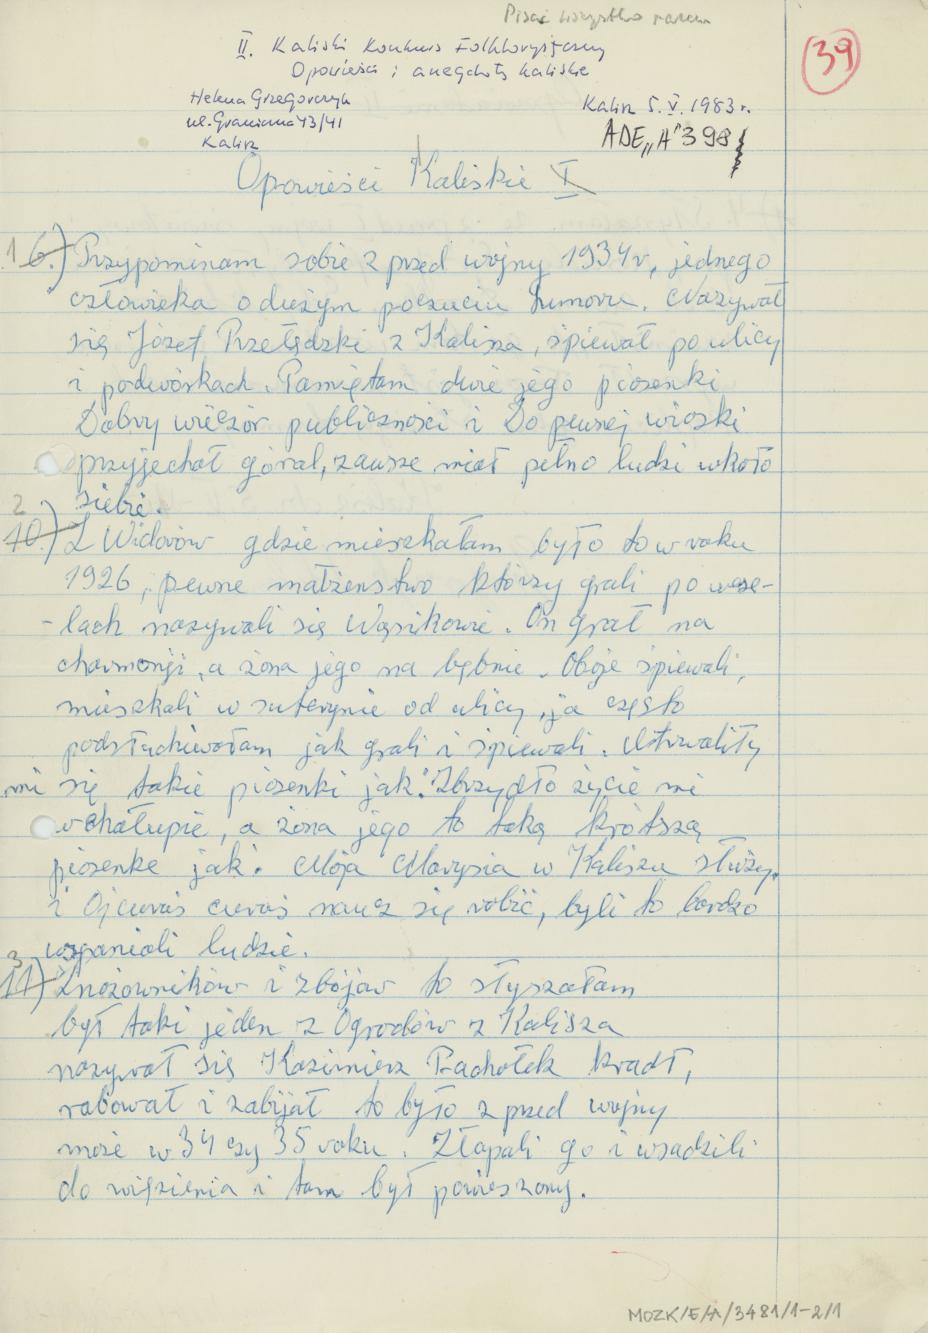 Pisać wszystko razem
39
II. Kaliski Konkurs Folklorystyczny
Opowieści i anegdoty kaliskie
Helena Grzegorczyk
ul. Graniczna 43/41
Kalisz
Kalisz 5.V.1983r.
ADE „A" 398
Opowieści Kaliskie I
1 6.) Przypominam sobie z przed wojny 1934r, jednego
człowieka o dużym poczuciu humoru. Nazywał
się Józef Przełędzki z Kalisza, śpiewał po ulicy
i podwórkach. Pamiętam dwie jego piosenki
Dobry wieczór publiczności i Do pewnej wioski
przyjechał góral, zawsze miał pełno ludzi wkoło
siebie.
2 10.) Z Widorów gdzie mieszkałam było to w roku
1926, pewne małżenstwo którzy grali po wese-
-lach nazywali się Wąsikowie. On grał na
charmonji, a żona jego na bębnie. Oboje śpiewali,
mieszkali w suterynie od ulicy, ja często
podsłuchiwałam jak grali i śpiewali. Utrwaliły
mi się takie piosenki jak: Zbrzydło życie mi
w chałupie, a żona jego to taką krótszą
piosenke jak. Moja Marysia w Kaliszu służy.
i Ojcuraś curaś naucz się robić, byli to bardzo
wspaniali ludzie.
3 11) Znożowników i zbójów to słyszałam
był taki jeden z Ogrodów z Kalisza
nazywał się Kazimierz Pachołek kradł,
rabował i zabijał to było z przed wojny
może w 34 czy 35 roku. Złapali go i wsadzili
do więzienia i tam był powieszony.
MOZK/E/A/3481/1-2/1